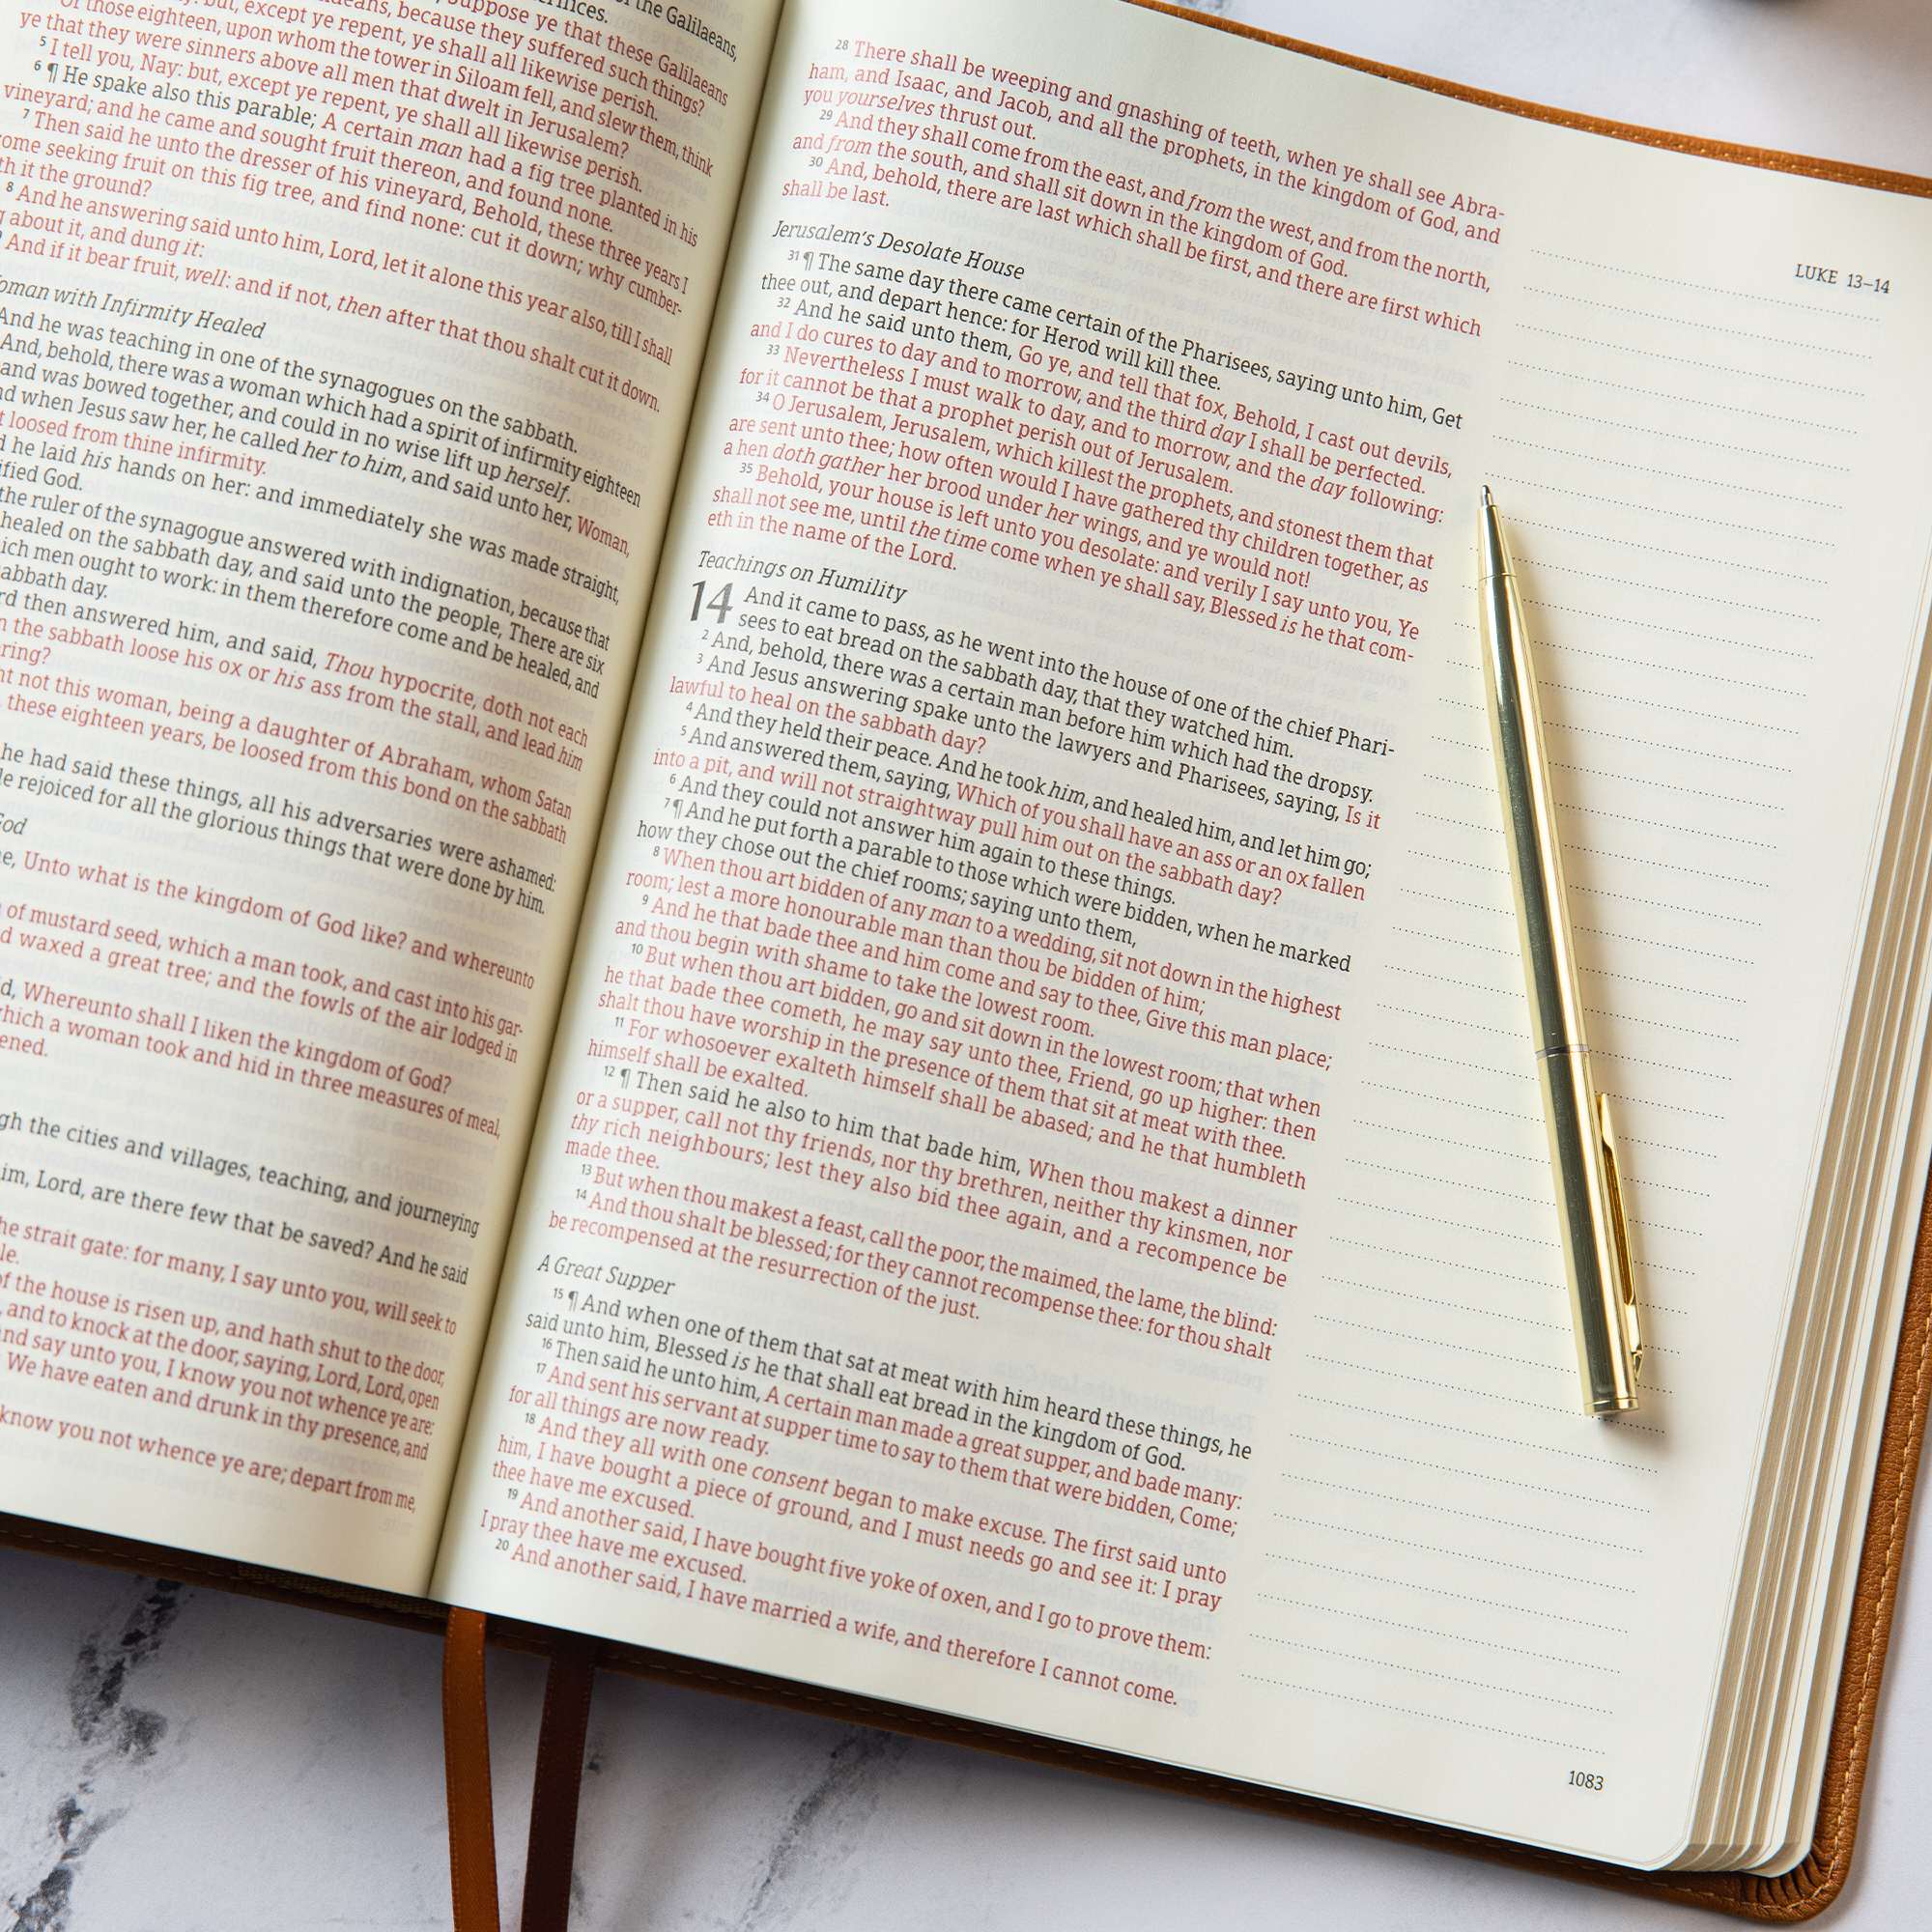 of the Galilaeans,
suppose ye that these Galilaeans
because they suffered such things?
but, except ye repent, ye shall all likewise perish.
Of those eighteen, upon whom the tower in Siloam fell, and slew them, think
ye that they were sinners above all men that dwelt in Jerusalem?
5 I tell you, Nay: but, except ye repent, ye shall all likewise perish.
6 ¶ He spake also this parable; A certain man had a fig tree planted in his
vineyard; and he came and sought fruit thereon, and found none.
7 Then said he unto the dresser of his vineyard, Behold, these three years I
ome seeking fruit on this fig tree, and find none: cut it down; why cumber-
th it the ground?
8 And he answering said unto him, Lord, let it alone this year also, till I shall
about it, and dung it:
And if it bear fruit, well: and if not, then after that thou shalt cut it down.
oman with Infirmity Healed
And he was teaching in one of the synagogues on the sabbath.
And, behold, there was a woman which had a spirit of infirmity eighteen
and was bowed together, and could in no wise lift up herself.
nd when Jesus saw her, he called her to him, and said unto her, Woman,
t loosed from thine infirmity.
d he laid his hands on her: and immediately she was made straight,
ified God.
the ruler of the synagogue answered with indignation, because that
healed on the sabbath day, and said unto the people, There are six
ich men ought to work: in them therefore come and be healed, and
abbath day.
rd then answered him, and said, Thou hypocrite, doth not each
n the sabbath loose his ox or his ass from the stall, and lead him
ring?
ht not this woman, being a daughter of Abraham, whom Satan
these eighteen years, be loosed from this bond on the sabbath
he had said these things, all his adversaries were ashamed:
le rejoiced for all the glorious things that were done by him.
God
e, Unto what is the kingdom of God like? and whereunto
of mustard seed, which a man took, and cast into his gar-
d waxed a great tree; and the fowls of the air lodged in
d, Whereunto shall I liken the kingdom of God?
which a woman took and hid in three measures of meal,
ened.
gh the cities and villages, teaching, and journeying
im, Lord, are there few that be saved? And he said
he strait gate: for many, I say unto you, will seek to
le.
of the house is risen up, and hath shut to the door,
and to knock at the door, saying, Lord, Lord, open
nd say unto you, I know you not whence ye are:
We have eaten and drunk in thy presence, and
know you not whence ye are; depart from me,
LUKE 13–14
28 There shall be weeping and gnashing of teeth, when ye shall see Abra-
ham, and Isaac, and Jacob, and all the prophets, in the kingdom of God, and
you yourselves thrust out.
29 And they shall come from the east, and from the west, and from the north,
and from the south, and shall sit down in the kingdom of God.
30 And, behold, there are last which shall be first, and there are first which
shall be last.
Jerusalem's Desolate House
31 ¶ The same day there came certain of the Pharisees, saying unto him, Get
thee out, and depart hence: for Herod will kill thee.
32 And he said unto them, Go ye, and tell that fox, Behold, I cast out devils,
and I do cures to day and to morrow, and the third day I shall be perfected.
33 Nevertheless I must walk to day, and to morrow, and the day following:
for it cannot be that a prophet perish out of Jerusalem.
34 O Jerusalem, Jerusalem, which killest the prophets, and stonest them that
are sent unto thee; how often would I have gathered thy children together, as
a hen doth gather her brood under her wings, and ye would not!
35 Behold, your house is left unto you desolate: and verily I say unto you, Ye
shall not see me, until the time come when ye shall say, Blessed is he that com-
eth in the name of the Lord.
Teachings on Humility
14 And it came to pass, as he went into the house of one of the chief Phari-
sees to eat bread on the sabbath day, that they watched him.
2 And, behold, there was a certain man before him which had the dropsy.
3 And Jesus answering spake unto the lawyers and Pharisees, saying, Is it
lawful to heal on the sabbath day?
4 And they held their peace. And he took him, and healed him, and let him go;
5 And answered them, saying, Which of you shall have an ass or an ox fallen
into a pit, and will not straightway pull him out on the sabbath day?
6 And they could not answer him again to these things.
7 ¶ And he put forth a parable to those which were bidden, when he marked
how they chose out the chief rooms; saying unto them,
8 When thou art bidden of any man to a wedding, sit not down in the highest
room; lest a more honourable man than thou be bidden of him;
9 And he that bade thee and him come and say to thee, Give this man place;
and thou begin with shame to take the lowest room.
10 But when thou art bidden, go and sit down in the lowest room; that when
he that bade thee cometh, he may say unto thee, Friend, go up higher: then
shalt thou have worship in the presence of them that sit at meat with thee.
11 For whosoever exalteth himself shall be abased; and he that humbleth
himself shall be exalted.
12 ¶ Then said he also to him that bade him, When thou makest a dinner
or a supper, call not thy friends, nor thy brethren, neither thy kinsmen, nor
thy rich neighbours; lest they also bid thee again, and a recompence be
made thee.
13 But when thou makest a feast, call the poor, the maimed, the lame, the blind:
14 And thou shalt be blessed; for they cannot recompense thee: for thou shalt
be recompensed at the resurrection of the just.
A Great Supper
15 ¶ And when one of them that sat at meat with him heard these things, he
said unto him, Blessed is he that shall eat bread in the kingdom of God.
16 Then said he unto him, A certain man made a great supper, and bade many:
17 And sent his servant at supper time to say to them that were bidden, Come;
for all things are now ready.
18 And they all with one consent began to make excuse. The first said unto
him, I have bought a piece of ground, and I must needs go and see it: I pray
thee have me excused.
19 And another said, I have bought five yoke of oxen, and I go to prove them:
I pray thee have me excused.
20 And another said, I have married a wife, and therefore I cannot come.
1083